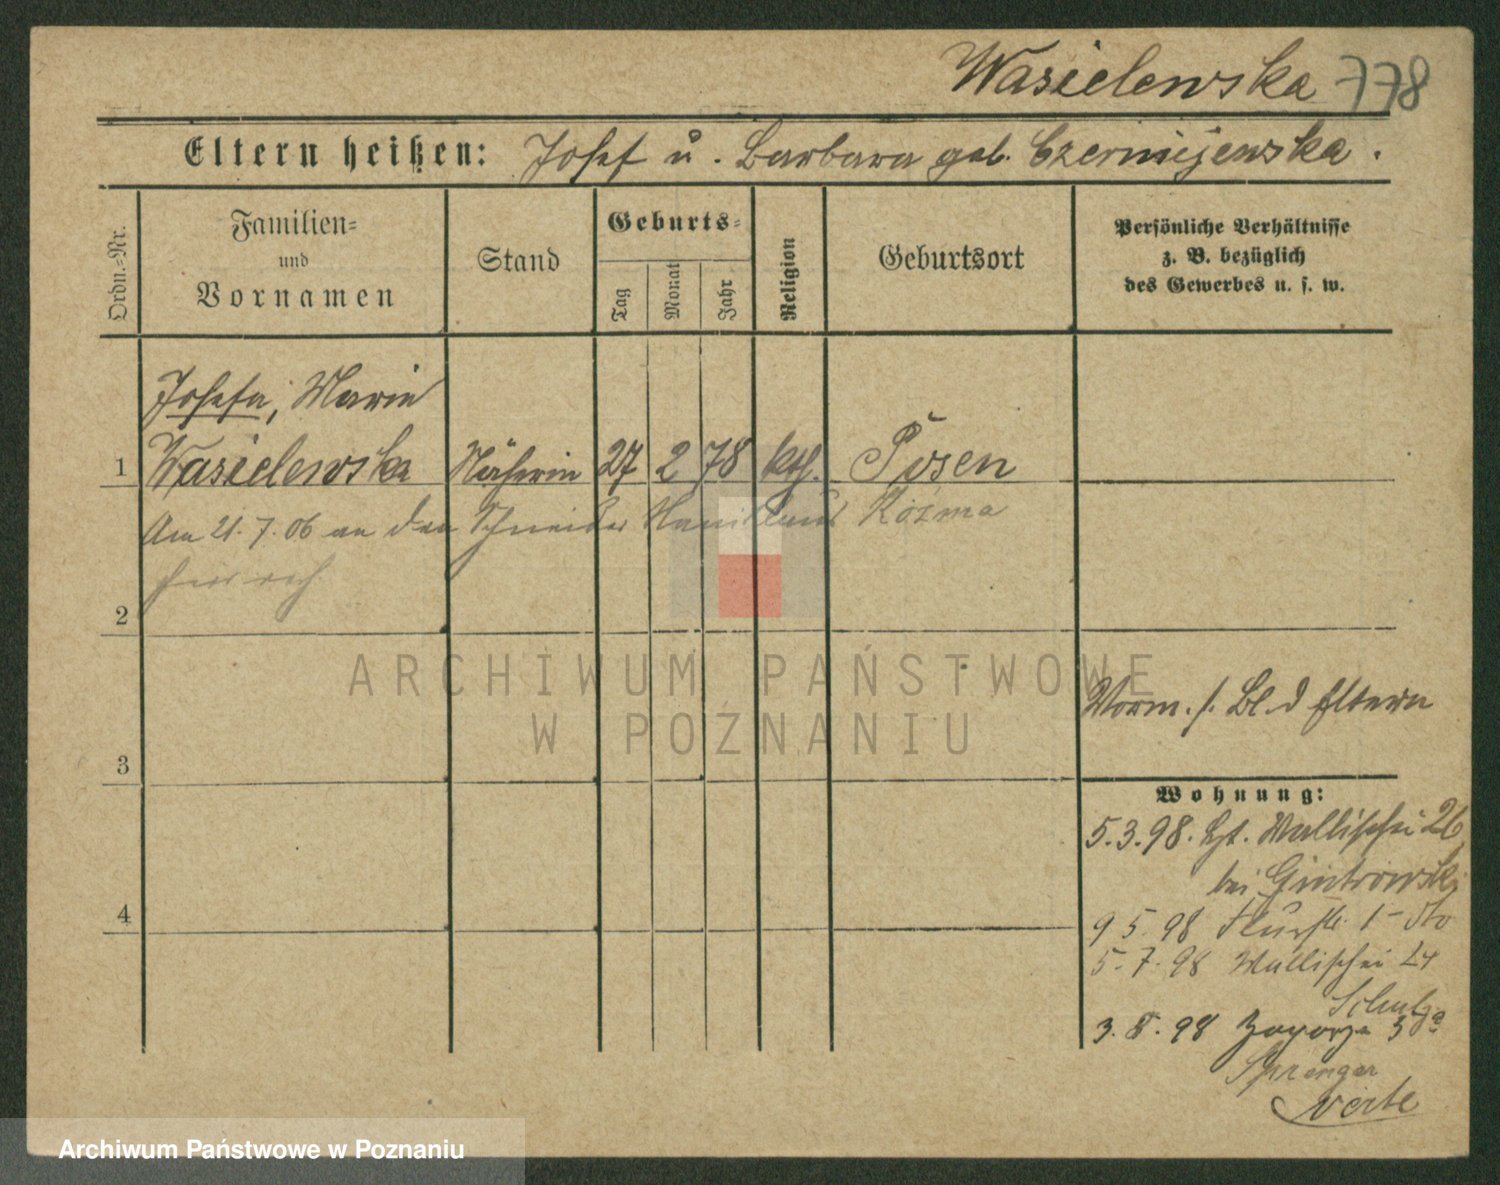 Wasielewska 778
Eltern heißen: Josef u. Barbara geb. Czerniejewska.
Ordn.-Nr.
Familien-
und
Vornamen
Stand
Geburts-
Tag
Monat
Jahr
Religion
Geburtsort
Persönliche Verhältnisse
z. B. bezüglich
des Gewerbes u. s. w.
Josefa, Marie
1 Wasielewska Näherin 27 2 78 kth. Posen
Am 21.7.06 an den Schneider Kozma
2
3
4
Vorm. s. Bl. d Eltern
Wohnung:
5.3.98. Wallischei 26
bei Gintrowski
9 5. 98
5. 7. 98 Wallischei 24
Schulz
3. 8. 98 Zagorze 3
Sprenger
verte
ARCHIWUM PAŃSTWOWE
W POZNANIU
Archiwum Państwowe w Poznaniu